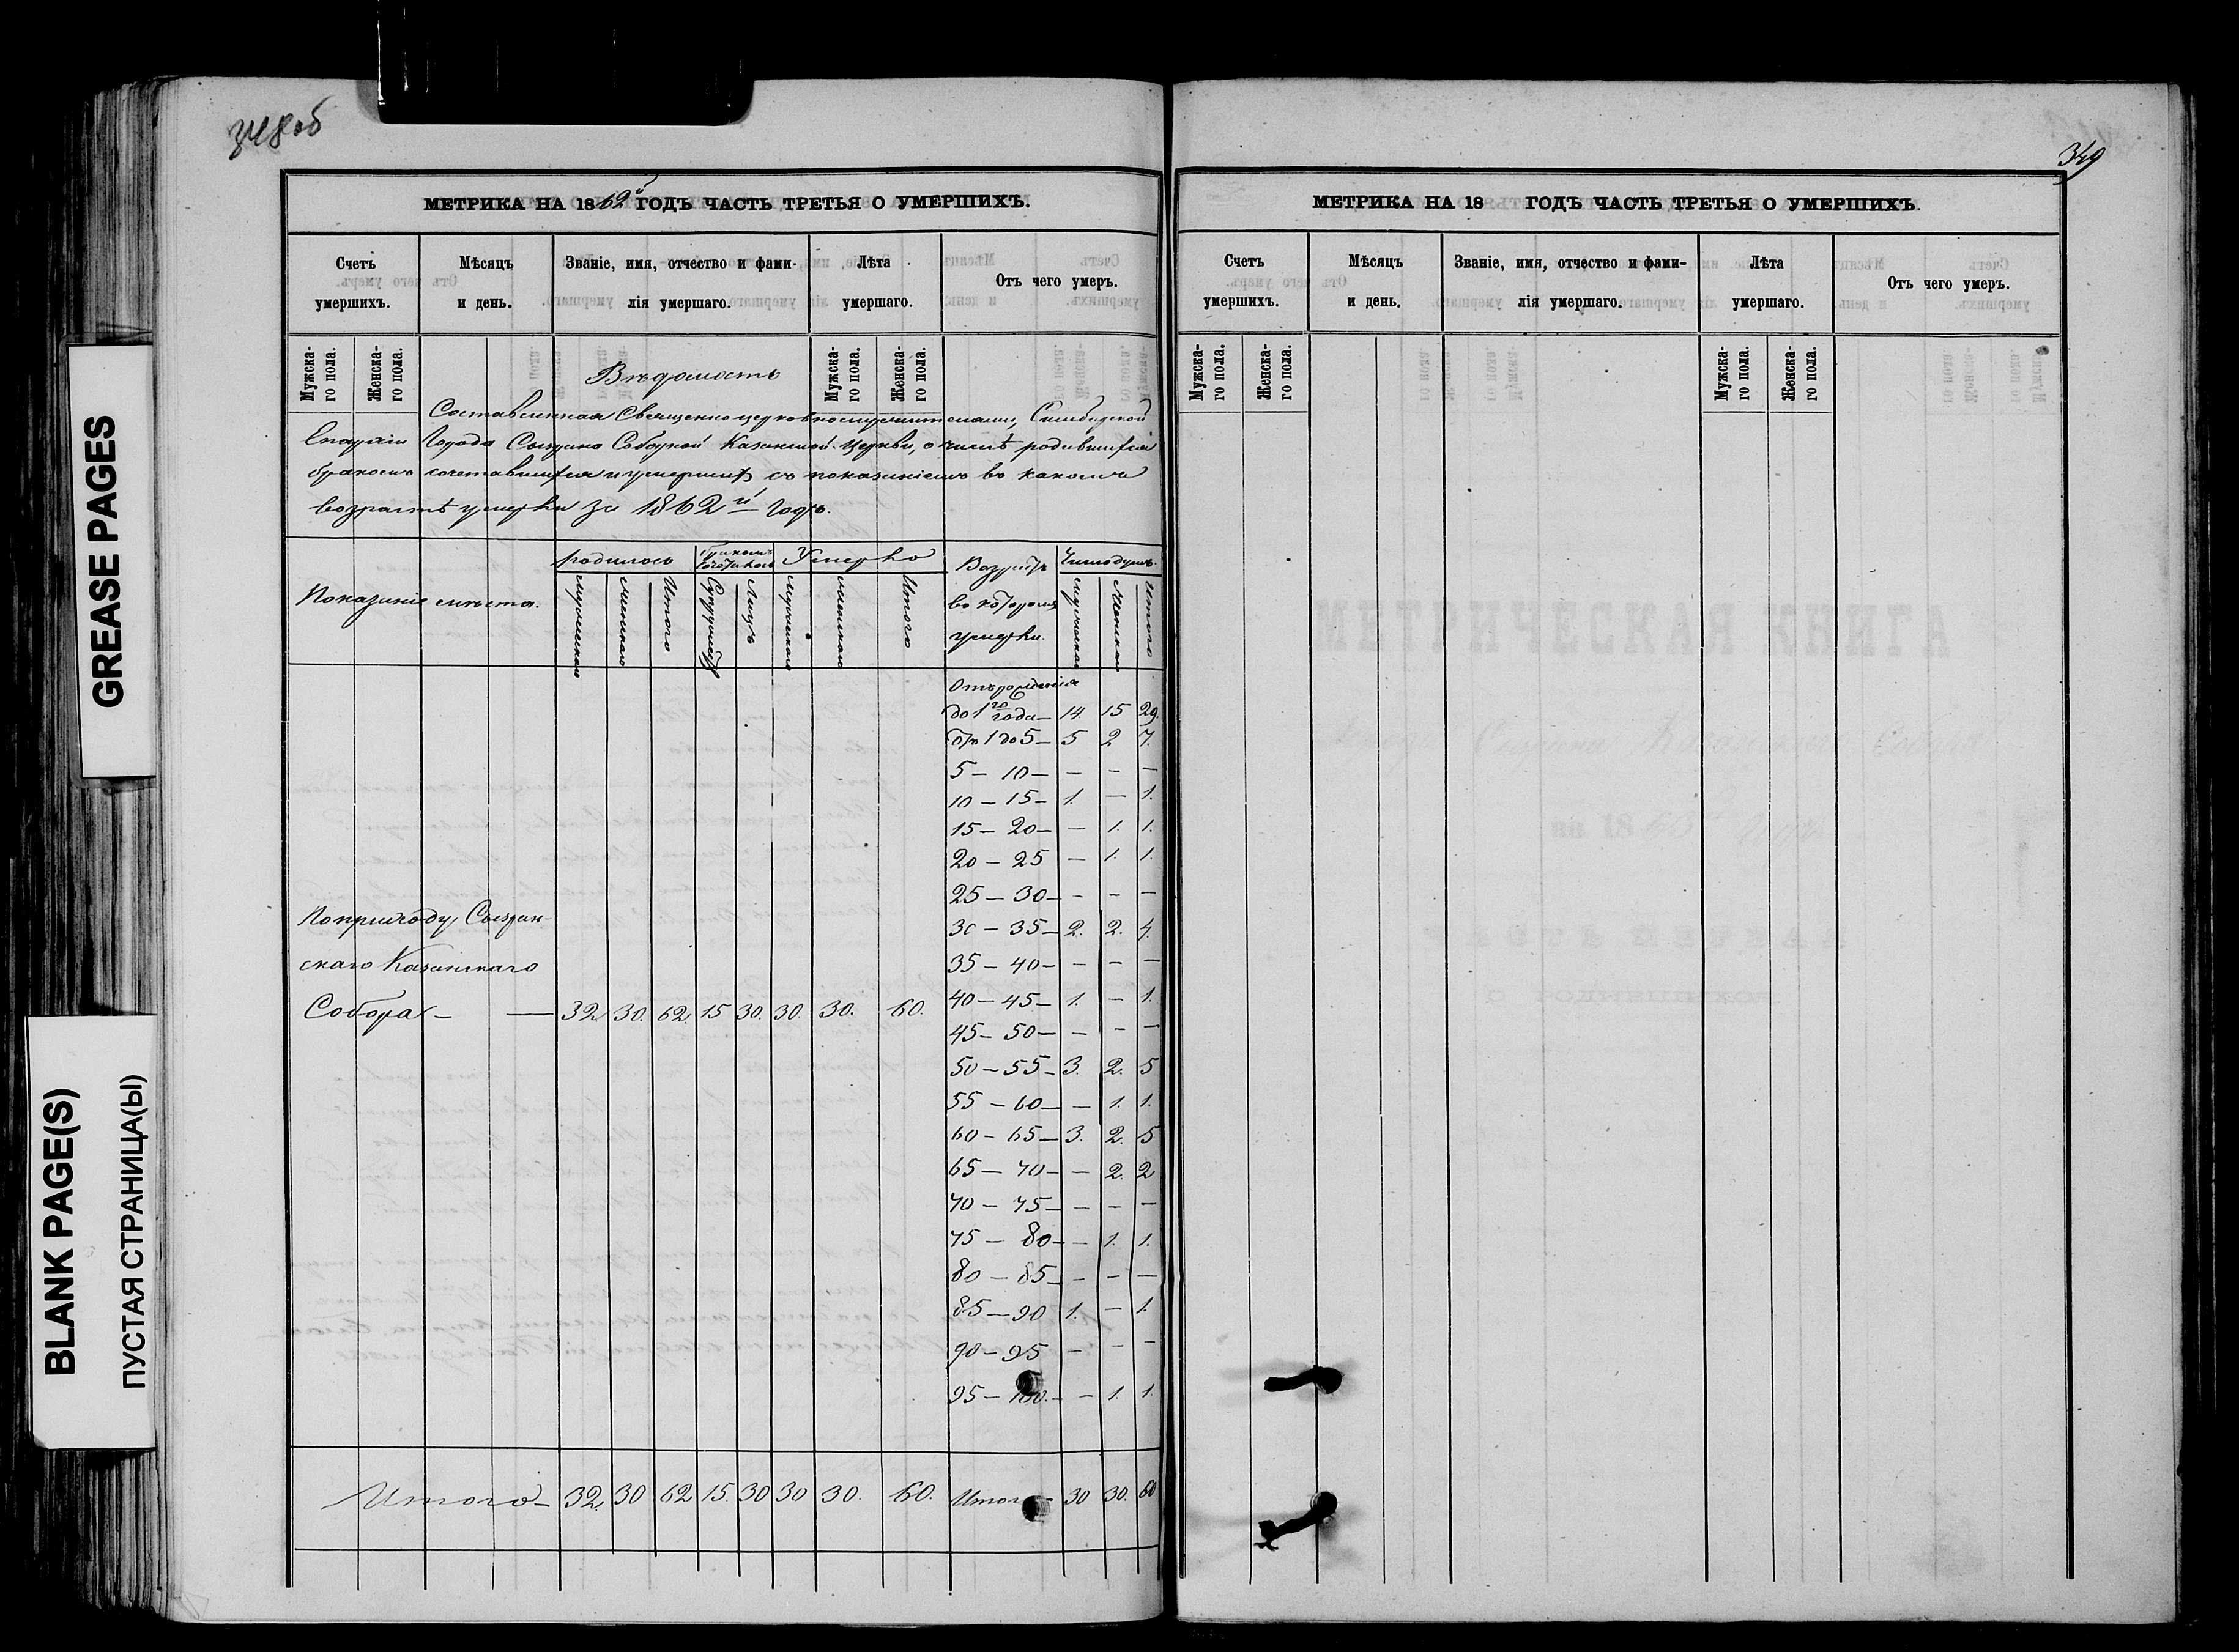 348 об
МЕТРИКА НА 1862й ГОДЪ ЧАСТЬ ТРЕТЬЯ О УМЕРШИХЪ.
Счетъ умершихъ. Мѣсяцъ и день. Званіе, имя, отчество и фамилія умершаго. Лѣта умершаго. Отъ чего умеръ.
Мужскаго пола. Женскаго пола. Мужскаго пола. Женскаго пола.
Вѣдомость
Составленная Священноцерковнослужителями, Симбирской
Епархіи Города Сызрана Соборной Казанской Церкви, о числѣ родившихся
бракомъ сочетавшихся и умершихъ съ показаніемъ въ какомъ
возрастѣ умерли за 1862й Годъ.
Показаніе мѣста. родилось бракомъ Умерло Возрастъ Число душъ.
Мужескаго Женскаго Итого Супружествъ Лицъ Мужескаго Женскаго Итого въ которомъ умерли. Мужескаго Женскаго Итого
Отъ рожденія
до 1го года — 14. 15 29.
Отъ 1 до 5 — 5 2 7.
5 — 10 — — — —
10 — 15 — 1. — 1.
15 — 20 — — 1. 1.
20 — 25 — 1. 1.
25 — 30 — — — —
30 — 35 — 2. 2. 4.
35 — 40 — — — —
40 — 45 — 1. — 1.
45 — 50 — — — —
50 — 55 — 3. 2. 5
55 — 60 — — 1. 1.
60 — 65 — 3. 2. 5
65 — 70 — — 2. 2
70 — 75 — — — —
75 — 80 — — 1. 1.
80 — 85 — — — —
85 — 90 1. — 1.
90 — 95 — — —
95 — 100. — — 1. 1.
По приходу Сызран-
скаго Казанскаго
Собора — — 32. 30. 62. 15 30. 30. 30. 60.
Итого — 32. 30 62 15. 30 30 30. 60. Итого — 30 30. 60
349
МЕТРИКА НА 18 ГОДЪ ЧАСТЬ ТРЕТЬЯ О УМЕРШИХЪ.
Счетъ умершихъ. Мѣсяцъ и день. Званіе, имя, отчество и фамилія умершаго. Лѣта умершаго. Отъ чего умеръ.
Мужскаго пола. Женскаго пола. Мужскаго пола. Женскаго пола.
GREASE PAGES
BLANK PAGE(S)
ПУСТАЯ СТРАНИЦА(Ы)